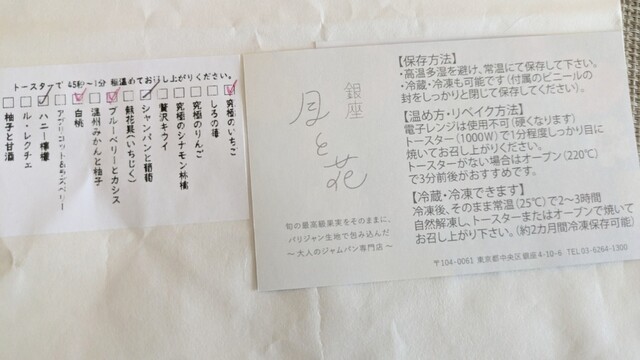 トースターで45秒〜1分 極温めてお召し上がりください。
究極のいちご
しろの苺
究極のりんご
究極のシナモン林檎
贅沢キウイ
シャンパンと葡萄
無花果(いちじく)
ブルーベリーとカシス
温州みかんと柚子
白桃
アプリコット&ラズベリー
ハニー檸檬
ル・レクチェ
柚子と甘酒
銀座
月と花
旬の最高級果実をそのままに、
パリジャン生地で包み込んだ
〜大人のジャムパン専門店〜
【保存方法】
・高温多湿を避け、常温にて保存して下さい。
・冷蔵・冷凍も可能です(付属のビニールの
封をしっかりと閉じて保存してください)。
【温め方・リベイク方法】
電子レンジは使用不可(硬くなります)
トースター(1000W)で1分程度しっかり目に
焼いてお召し上がりください。
トースターがない場合はオーブン(220℃)
で3分前後がおすすめです。
【冷蔵・冷凍できます】
冷凍後、そのまま常温(25℃)で2〜3時間
自然解凍し、トースターまたはオーブンで焼いて
お召し上がり下さい。(約2カ月間冷凍保存可能)
〒104-0061 東京都中央区銀座4-10-6 TEL03-6264-1300